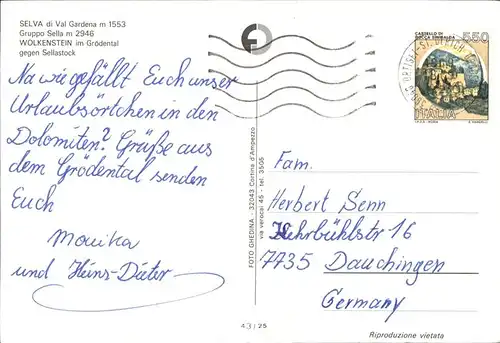 SELVA di Val Gardena m 1553
Gruppo Sella m 2946
WOLKENSTEIN im Grödental
gegen Sellastock
Na wie gefällt Euch unser
Urlaubsörtchen in den
Dolomiten? Grüße aus
dem Grödental senden
Euch
Monika
und Heinz-Dieter
FOTO GHEDINA - 32043 Cortina d'Ampezzo
via verocai 45 - tel. 3505
43/25
CASTELLO DI
ROCCA SINIBALDA
550
ITALIA
Fam.
Herbert Senn
Wehrbühlstr 16
7735 Dauchingen
Germany
Riproduzione vietata